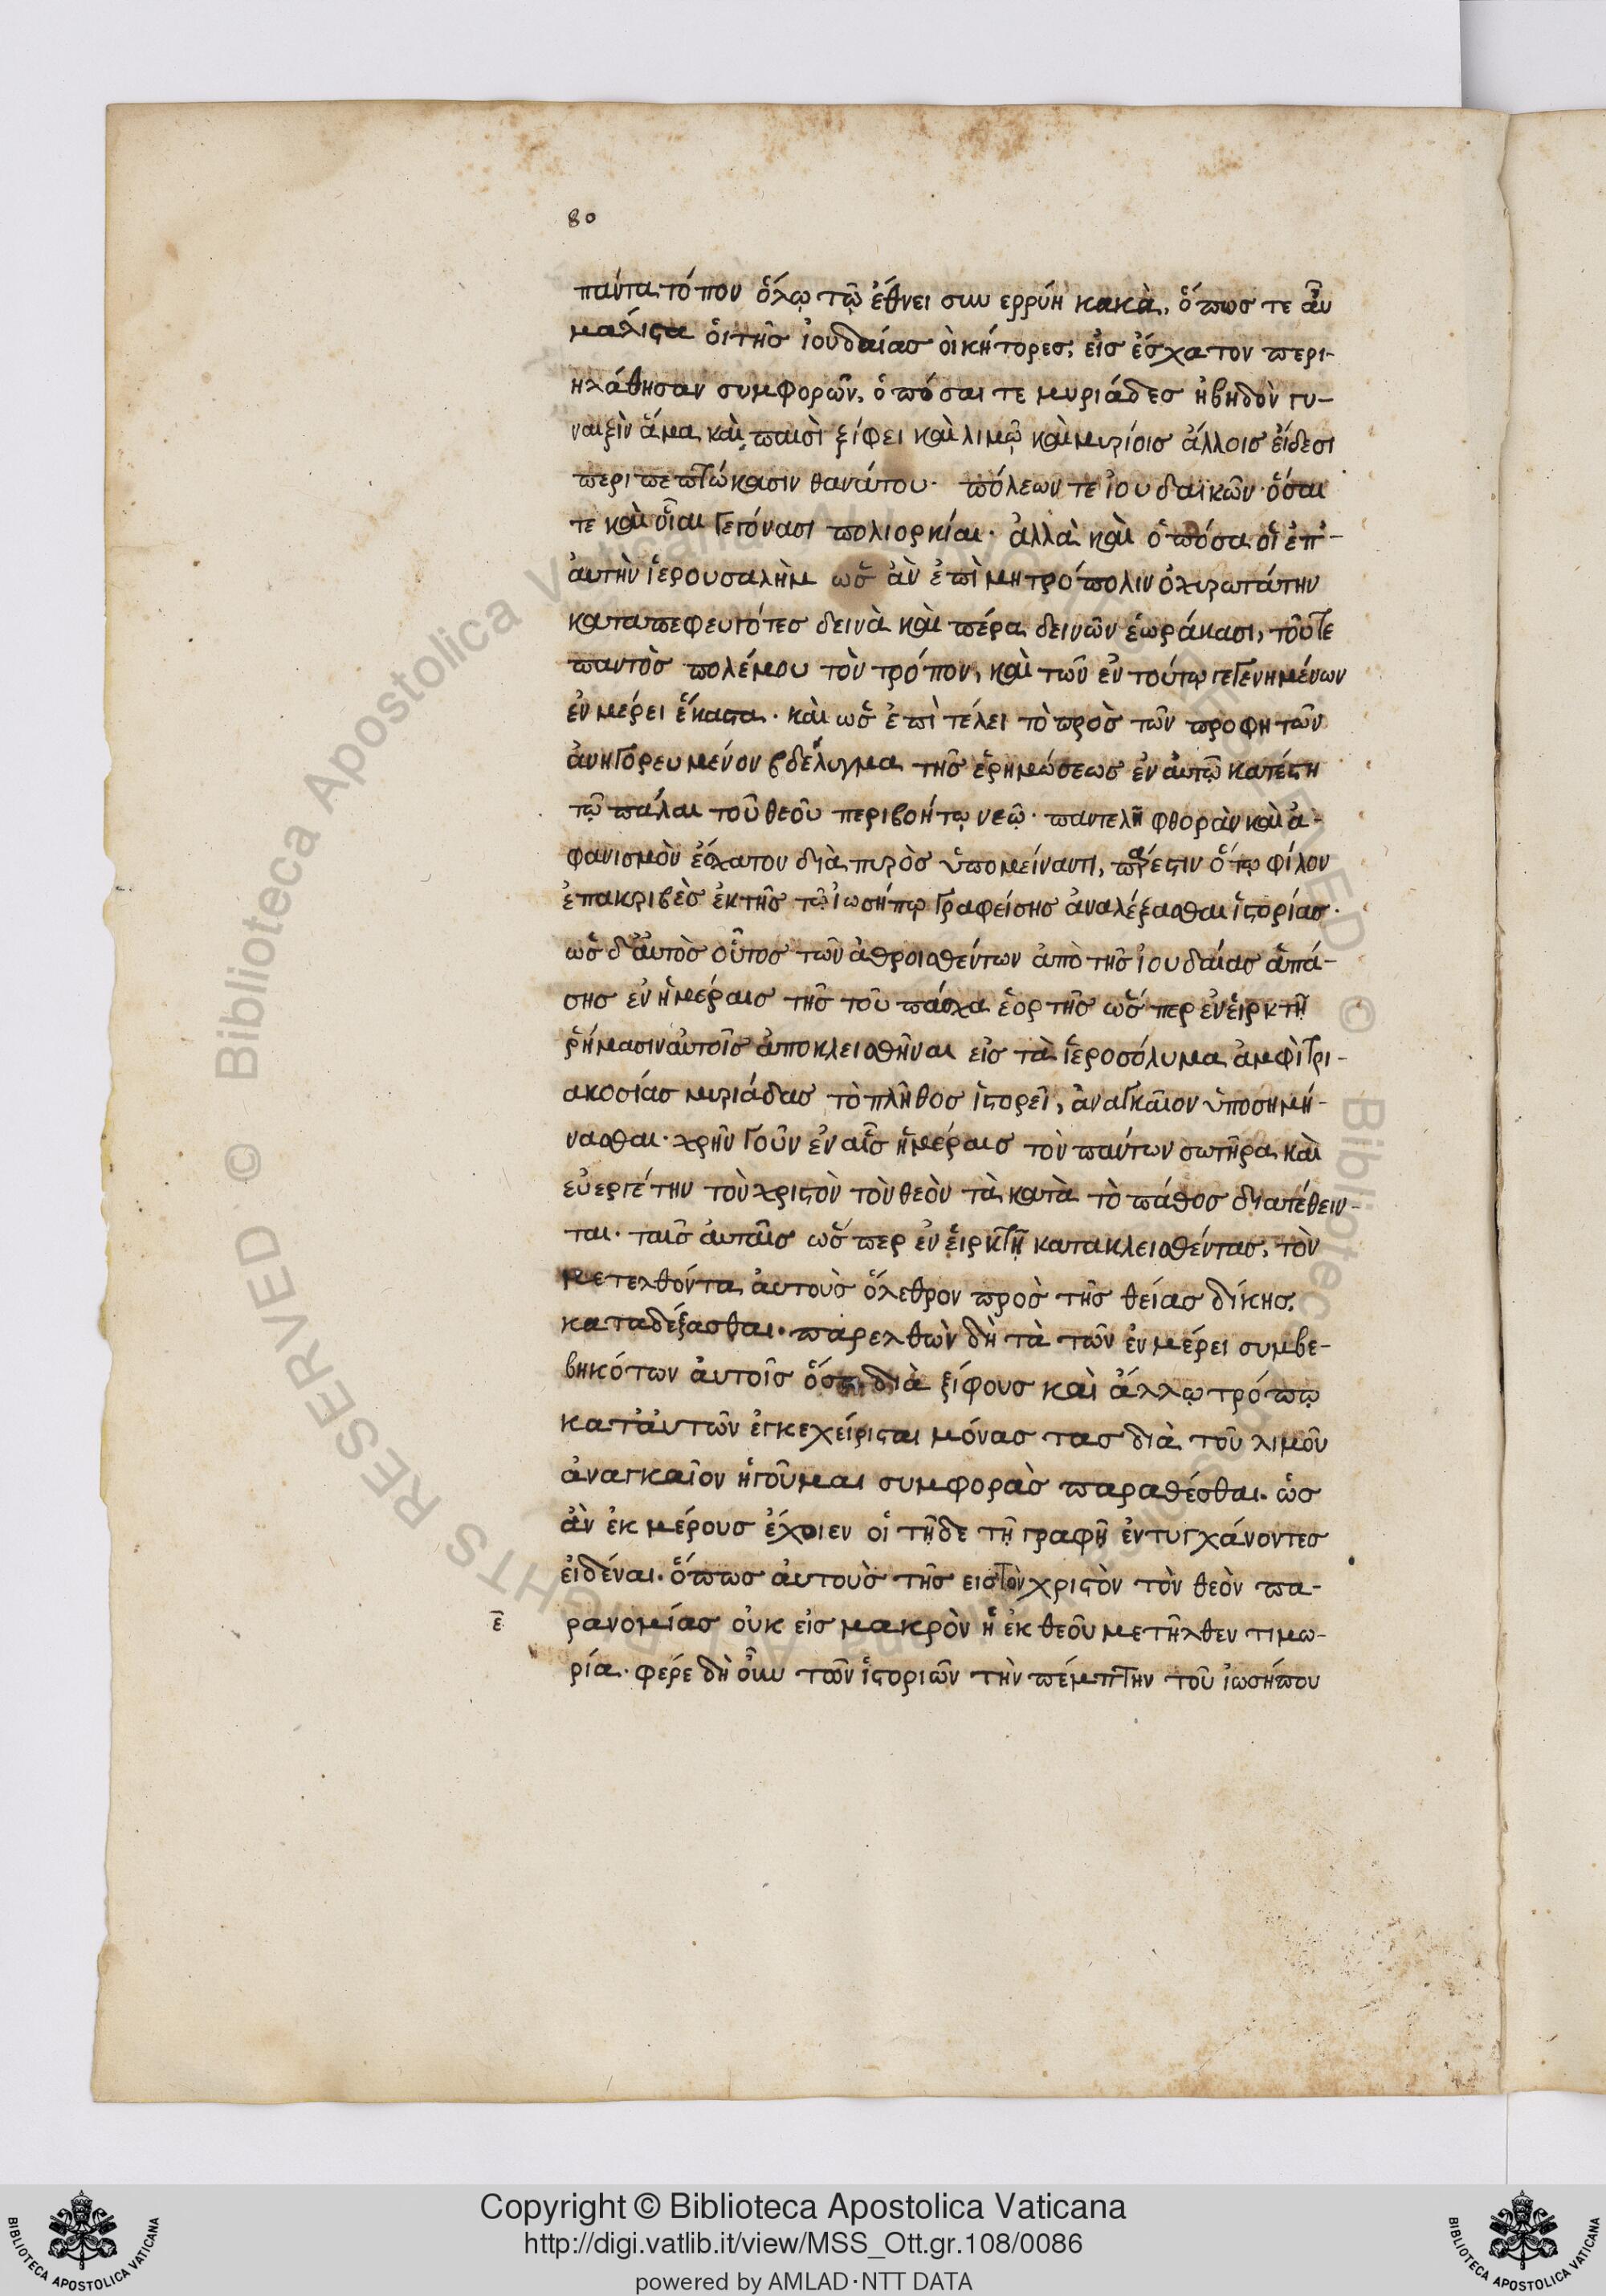 80
πάντα τόπον ὅλω τῶ ἔθνει συνερρύη κακὰ, ὅπως τε ἂν
μάλιστα ὁι τῆς ἰουδαίας ὀικήτορες, εἰς ἔσχατον περι-
ηλάθησαν συμφορῶν, ὁπόσαι τε μυριάδες ἡβηδὸν γυ-
ναιξὶν ἅμα καὶ παισὶ ξίφει καὶ λιμῶ καὶ μυρίοις ἄλλοις εἴδεσι
περιπεπτώκασιν θανάτου· πόλεων τε ἰουδαϊκῶν ὅσαι
τε καὶ οἷαι γεγόνασι πολιορκίαι· ἀλλὰ καὶ ὁπόσα οἱ ἐπ'-
ἀυτὴν ἱερουσαλὴμ ὡς ἂν ἐπὶ μητρόπολιν ὀχυρωτάτην
καταπεφευγότες δεινὰ καὶ πέρα δεινῶν ἑωράκασι, τοῦ τε
παντὸς πολέμου τὸν τρόπον, καὶ τῶν ἐν τούτω γεγενημένων
ἐν μέρει ἕκαστα· καὶ ὡς ἐπὶ τέλει τὸ πρὸς τῶν προφητῶν
ἀνηγορευμένον βδέλυγμα τῆς ἐρημώσεως ἐν ἀυτῶ κατέστη
τῶ πάλαι τοῦ θεοῦ περιβοήτω νεῶ· παντελῆ φθορὰν καὶ ἀ-
φανισμὸν ἔσχατον διὰ πυρὸς ὑπομείναντι, πάρεστιν ὅτω φίλον
ἐπακριβὲς ἐκ τῆς τῶ ἰωσήπω γραφείσης ἀναλέξασθαι ἱστορίας·
ὡς δ' ἀυτὸς οὗτος τῶν ἀθροισθέντων ἀπὸ τῆς ἰουδαίας ἁπά-
σης ἐν ἡμέραις τῆς τοῦ πάσχα ἑορτῆς ὥσπερ ἐν εἱρκτῆ
ῥήμασιν ἀυτοῖς ἀποκλεισθῆναι εἰς τὰ ἱεροσόλυμα ἀμφὶ τρι-
ακοσίας μυριάδας τὸ πλῆθος ἱστορεῖ, ἀναγκαῖον ὑποσημή-
νασθαι· χρῆν γοῦν ἐν αἷς ἡμέραις τὸν πάντων σωτῆρα καὶ
εὐεργέτην τὸν χριστὸν τὸν θεὸν τὰ κατὰ τὸ πάθος διατέθειν-
ται· ταῖς ἀυταῖς ὥσπερ ἐν εἱρκτῆ κατακλεισθέντας, τὸν
μετελθόντα ἀυτοὺς ὄλεθρον πρὸς τῆς θείας δίκης,
καταδέξασθαι· παρελθὼν δὴ τὰ τῶν ἐν μέρει συμβε-
βηκότων ἀυτοῖς ὅσα διὰ ξίφους καὶ ἄλλω τρόπω
κατ' ἀυτῶν ἐγκεχείρισται μόνας τας διὰ τοῦ λιμοῦ
ἀναγκαῖον ἡγοῦμαι συμφορὰς παραθέσθαι· ὡς
ἂν ἐκ μέρους ἔχοιεν οἱ τῆδε τῆ γραφῆ ἐντυγχάνοντες
εἰδέναι· ὅπως ἀυτοὺς τῆς εις τὸν χριστὸν τὸν θεὸν πα-
ε ρανομίας οὐκ εἰς μακρὸν ἡ ἐκ θεοῦ μετῆλθεν τιμω-
ρία· φέρε δὴ οὖν τῶν ἱστοριῶν τὴν πέμπτην τοῦ ἰωσήπου
© Biblioteca Apostolica Vaticana ALL RIGHTS RESERVED
Copyright © Biblioteca Apostolica Vaticana
http://digi.vatlib.it/view/MSS_Ott.gr.108/0086
powered by AMLAD·NTT DATA
BIBLIOTECA APOSTOLICA VATICANA
BIBLIOTECA APOSTOLICA VATICANA